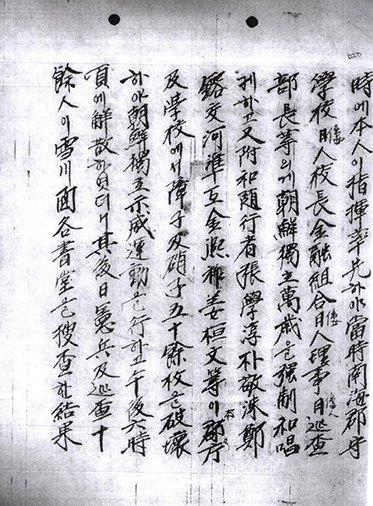 時에本人이指揮率先하야當時南海郡守
學校倭人校長金融組合倭人理事倭人巡査
部長等의게朝鮮獨立萬歲을强制和唱
케하고又附和随行者張學淳朴敏洙鄭
鎔交河準互金凞祚姜桓文等이郡庁
及學校에서障子及硝子五十餘枚을破壞
하야朝鮮獨立示威運動을行하고午後六時
頃에解散하엿더니其後日憲兵及巡査十
餘人이雪川面各書堂을搜查한結果